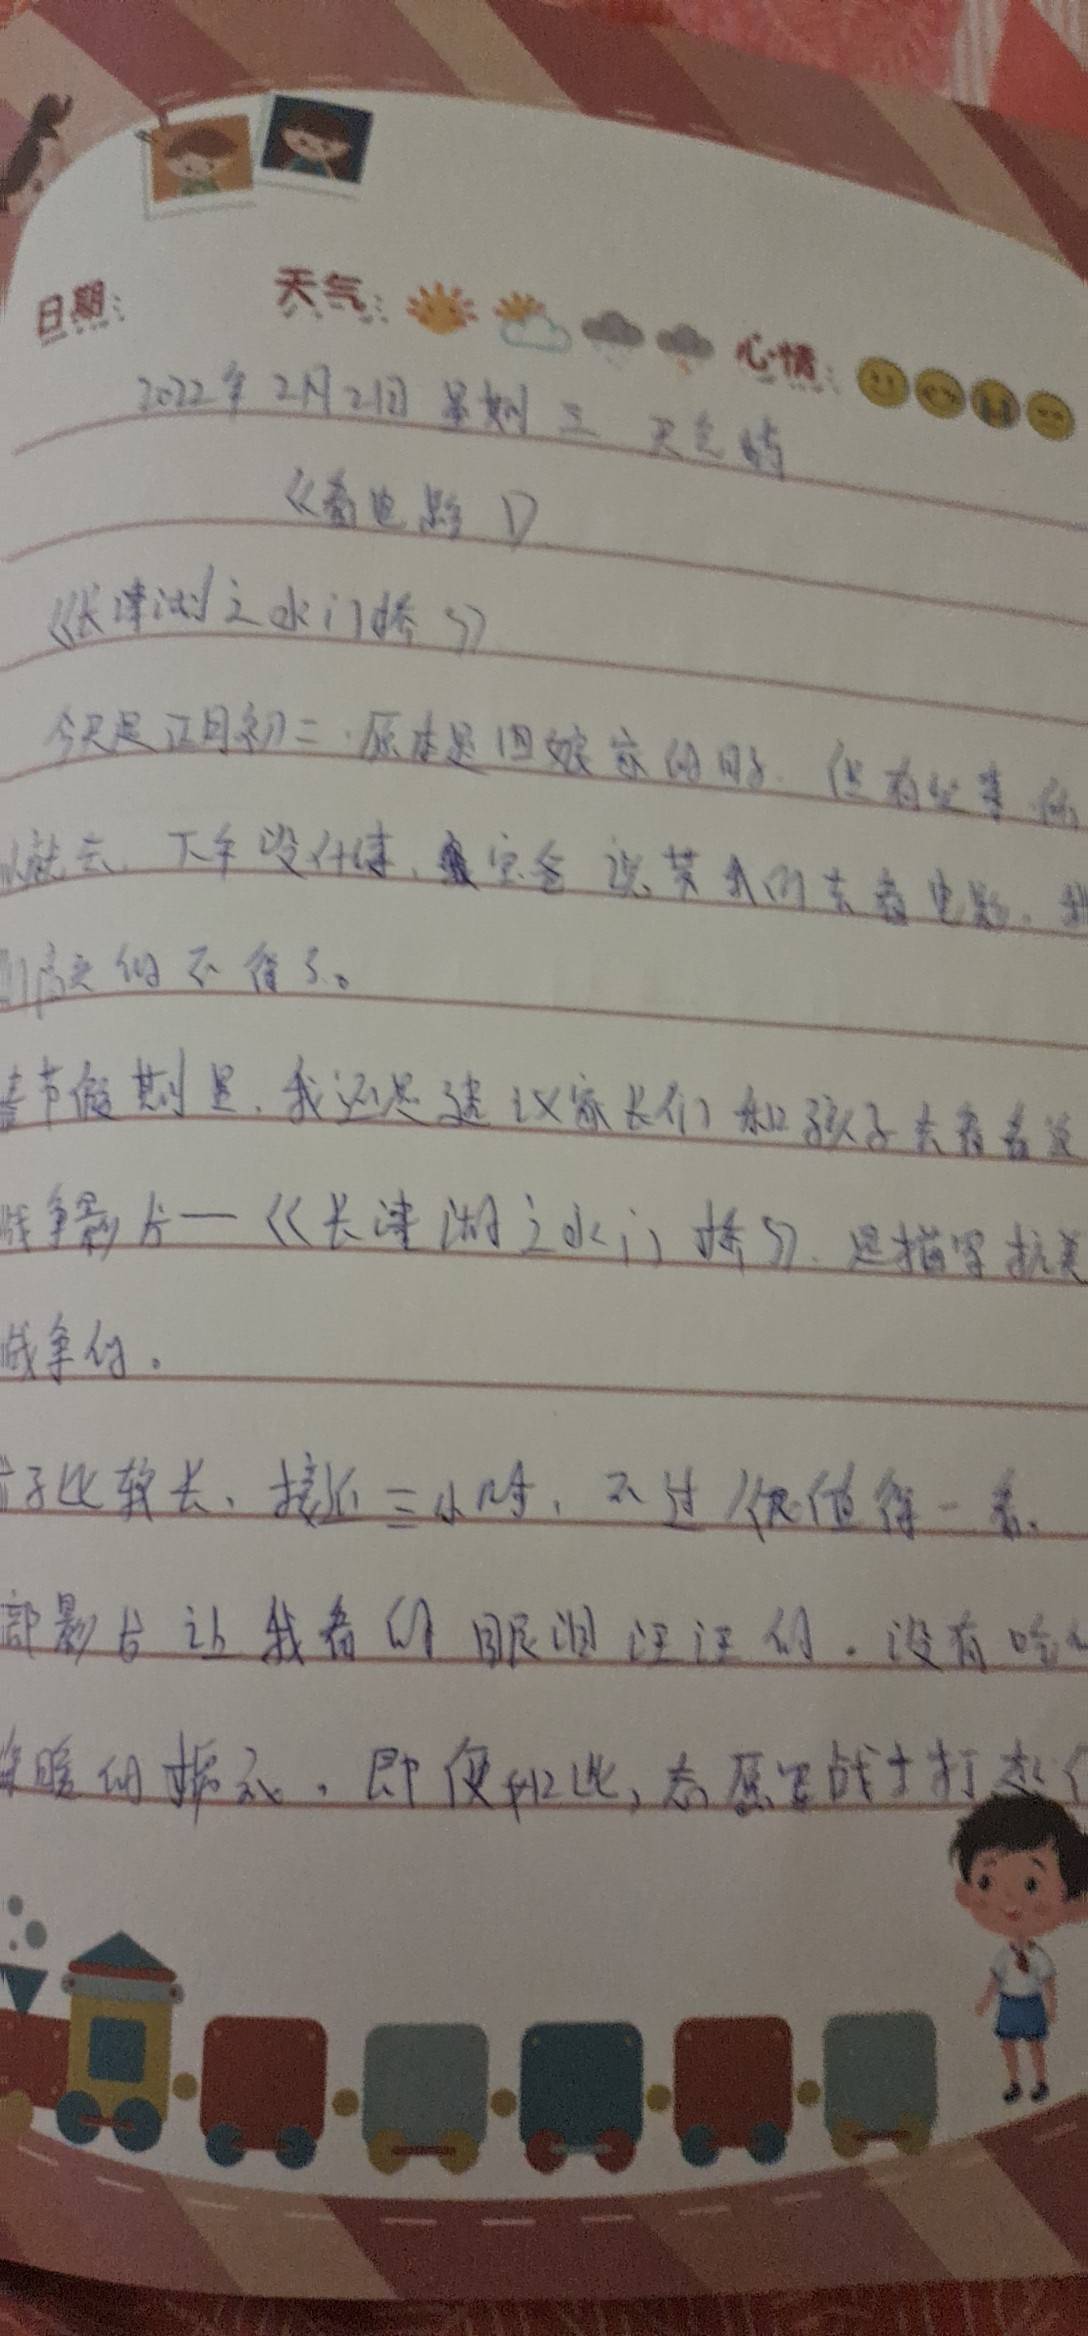 日期： 天气： 心情：
2022年2月2日 星期三 天气晴
《看电影》
《长津湖之水门桥》
今天是正月初二.原本是回娘家的日子.但有些事.所
以就去.下午没什事,宝爸说带我们去看电影.我
们高兴的不得了。
春节假期里.我还是建议家长们和孩子去看看这
战争影片—《长津湖之水门桥》.是描写抗美
战争的。
片子比较长、接近三小时,不过很值得一看.
部影片让我看的眼泪汪汪的.没有
保暖的.即便如此,志愿军战士打